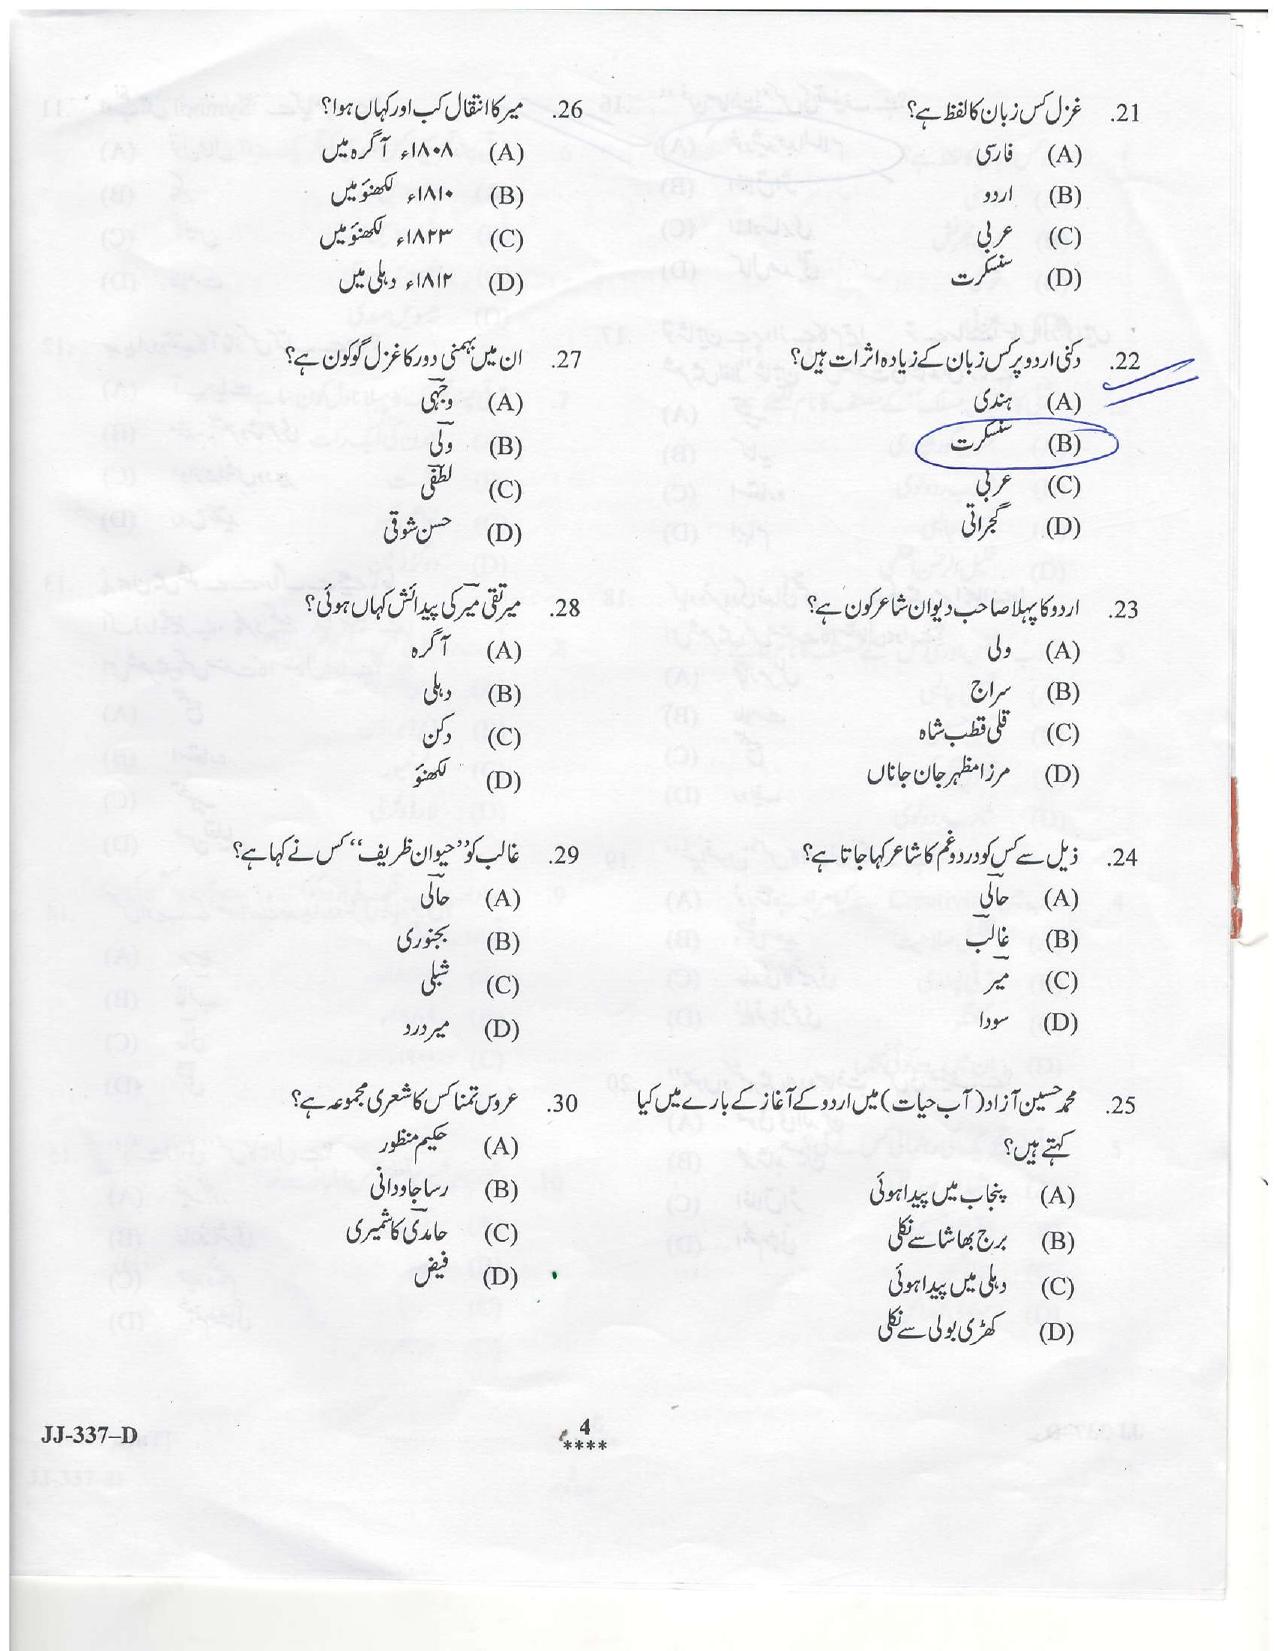 21. غزل کس زبان کا لفظ ہے؟
(A) فارسی
(B) اردو
(C) عربی
(D) سنسکرت
22. دکنی اردو پر کس زبان کے زیادہ اثرات ہیں؟
(A) ہندی
(B) سنسکرت
(C) عربی
(D) گجراتی
23. اردو کا پہلا صاحب دیوان شاعر کون ہے؟
(A) ولی
(B) سراج
(C) قلی قطب شاہ
(D) مرزا مظہر جان جاناں
24. ذیل سے کس کو درد و غم کا شاعر کہا جاتا ہے؟
(A) حالیؔ
(B) غالبؔ
(C) میرؔ
(D) سودا
25. محمد حسین آزاد (آب حیات) میں اردو کے آغاز کے بارے میں کیا
کہتے ہیں؟
(A) پنجاب میں پیدا ہوئی
(B) برج بھاشا سے نکلی
(C) دہلی میں پیدا ہوئی
(D) کھڑی بولی سے نکلی
26. میر کا انتقال کب اور کہاں ہوا؟
(A) ۱۸۰۸ء آگرہ میں
(B) ۱۸۱۰ء لکھنؤ میں
(C) ۱۸۲۳ء لکھنؤ میں
(D) ۱۸۱۲ء دہلی میں
27. ان میں بہمنی دور کا غزل گو کون ہے؟
(A) وجہیؔ
(B) ولیؔ
(C) لطفیؔ
(D) حسن شوقی
28. میر تقی میرؔ کی پیدائش کہاں ہوئی؟
(A) آگرہ
(B) دہلی
(C) دکن
(D) لکھنؤ
29. غالب کو ”حیوان ظریف“ کس نے کہا ہے؟
(A) حالیؔ
(B) بجنوری
(C) شبلی
(D) میر درد
30. عروس تمنا کس کا شعری مجموعہ ہے؟
(A) حکیم منظور
(B) رسا جاودانی
(C) حامدیؔ کاشمیری
(D) فیض
JJ-337–D
4
****